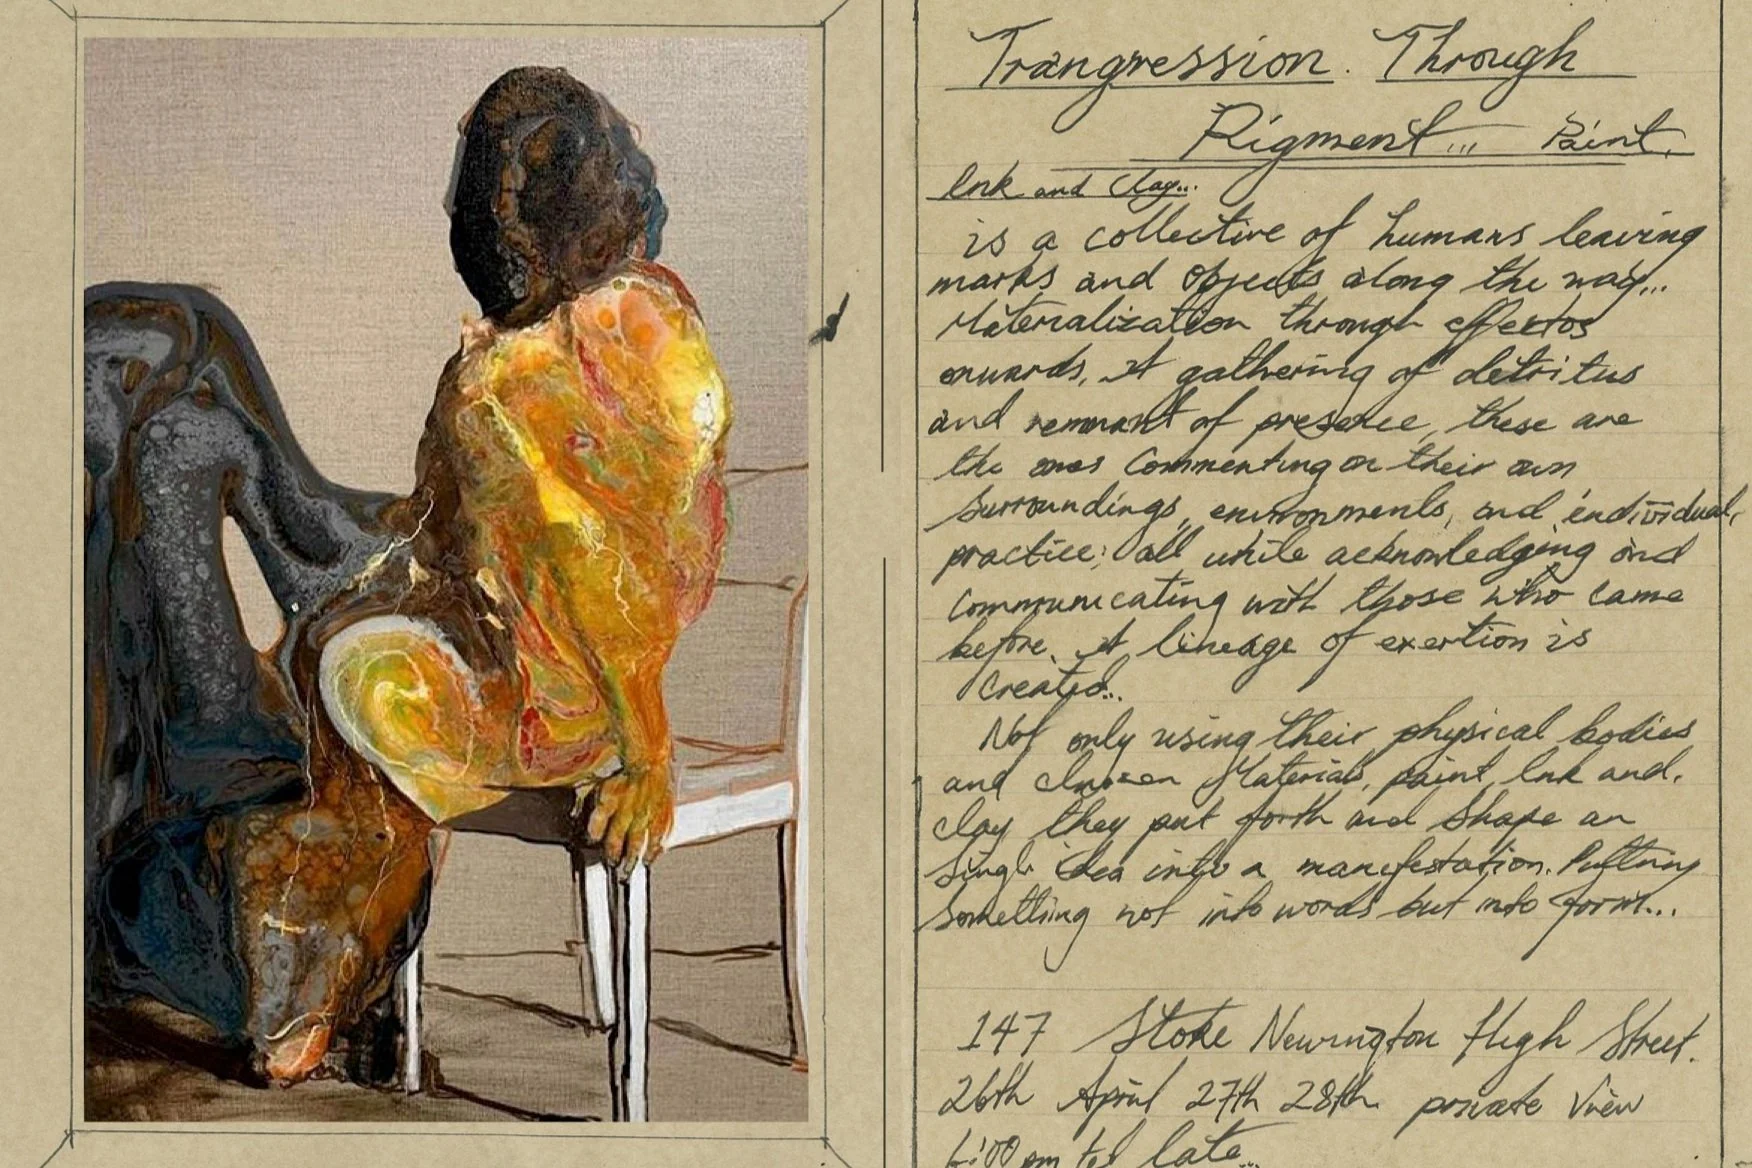 Trangression. Through
Pigment... Paint.
Ink and Clay...
is a collective of humans leaving
marks and objects along the way...
Materialization through effectos
onwards. A gathering of detritus
and remnant of presence, these are
the ones Commenting on their own
Surroundings, environments, and individual,
practice; all while acknowledging and
Communicating with those who came
before. A lineage of exertion is
Created...
Not only using their physical bodies
and chosen Materials, paint, Ink and.
Clay they put forth and Shape an
Singl idea into a manifestation. Putting
Something not into words but into form...
147 Stoke Newington High Street.
26th April 27th 28th. private View
6:00 pm til late...